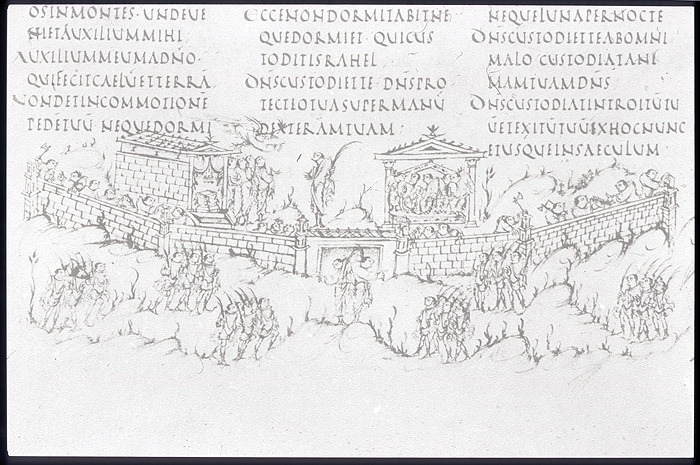 OSINMONTES·UNDEUE
NIETAUXILIUMMIHI
AUXILIUMMEUMADNO·
QUIFECITCAELŪETTERRA
NONDETINCOMMOTIONĒ
PEDĒTUŪ NEQUEDORMI
ECCENONDORMITABITNE
QUEDORMIET· QUICUS
TODITISRAHEL·
DN̄SCUSTODIETTE· DN̄SPRO
TECTIOTUASUPERMANŪ
DEXTERAMTUAM·
NEQUELUNAPERNOCTE
DN̄SCUSTODIETTEABOMNI
MALO CUSTODIATANI
MAMTUAMDN̄S·
DN̄SCUSTODIATINTROITŪTU
ŪETEXITŪTUŪEXHOCNUNC
ETUSQUEINSAECULUM·